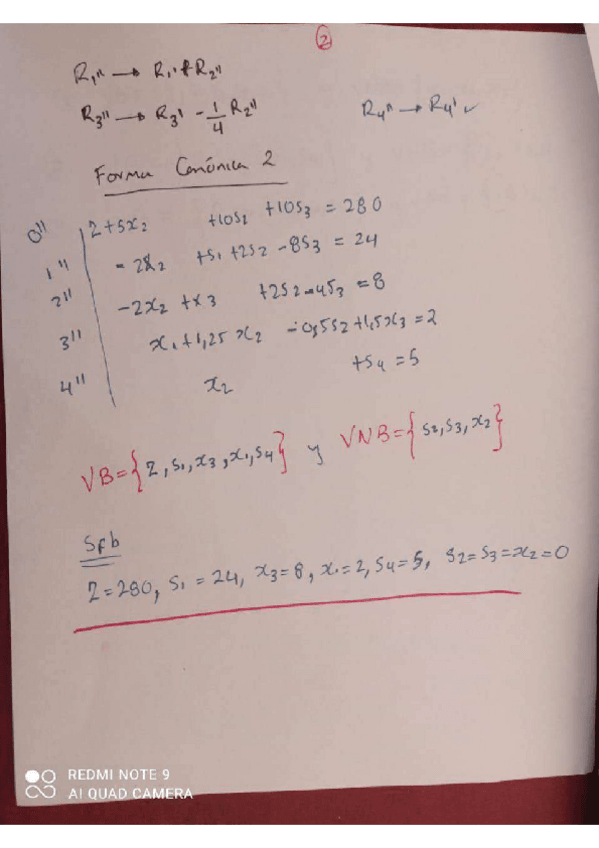 2
R₁'' → R₁' + R₂''
R₃'' → R₃' - 1/4 R₂'' R₄'' → R₄' ✓
Forma Canónica 2
0'' Z + 5x₂ + 10s₂ + 10s₃ = 280
1'' - 2x₂ + s₁ + 2s₂ - 8s₃ = 24
2'' -2x₂ + x₃ + 2s₂ - 4s₃ = 8
3'' x₁ + 1,25 x₂ - 0,5s₂ + 1,5x₃ = 2
4'' x₂ + s₄ = 5
VB = {Z, s₁, x₃, x₁, s₄} y VNB = {s₂, s₃, x₂}
Sfb
Z = 280, s₁ = 24, x₃ = 8, x₁ = 2, s₄ = 5, s₂ = s₃ = x₂ = 0
REDMI NOTE 9
AI QUAD CAMERA